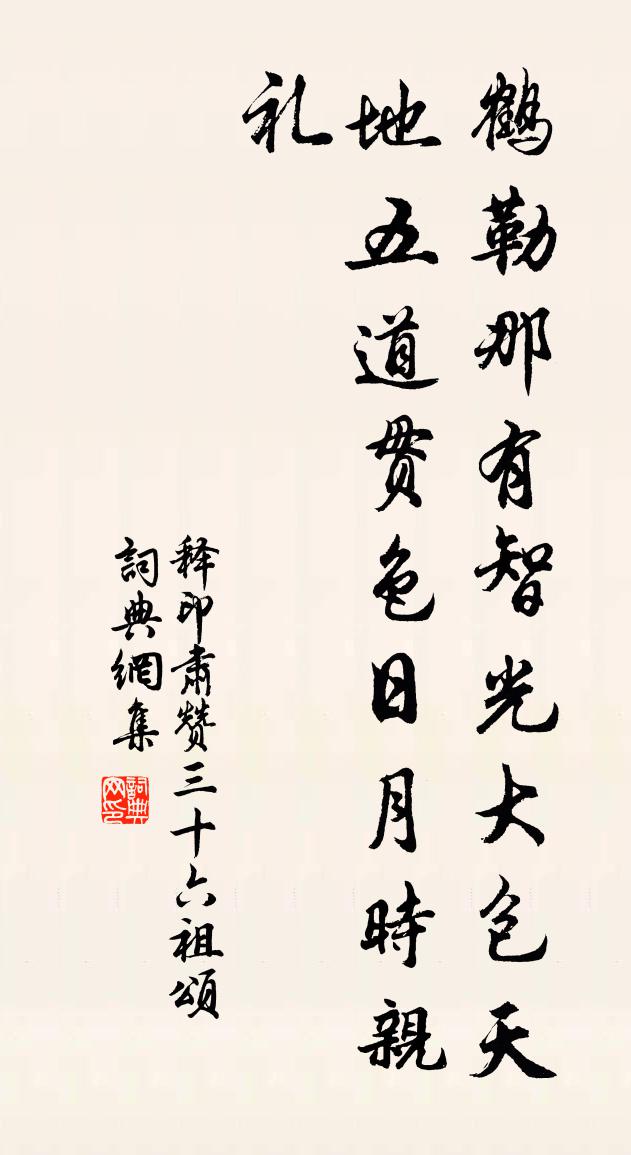 鶴勒那有智光大包天
地五道贯色日月時親
礼
释印肃赞三十六祖頌
詞典網集
詞典网印